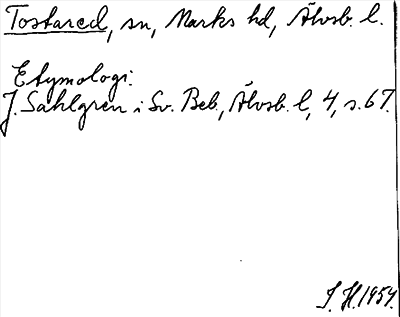 Tostared, sn, Marks hd, Älvsb. l.
Etymologi.
J. Sahlgren i Sv. Beb., Älvsb. l, 4, s. 67.
I. H. 1954.